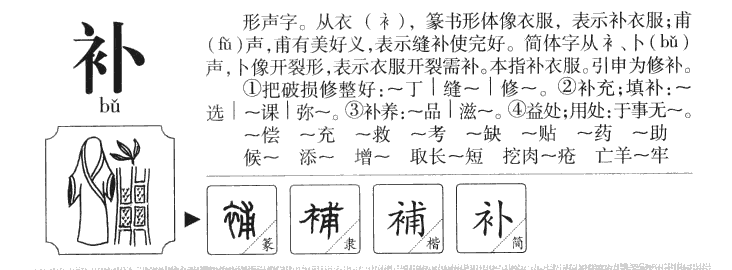 补
bǔ
形声字。从衣（衤），篆书形体像衣服，表示补衣服；甫
（fǔ）声，甫有美好义，表示缝补使完好。简体字从衤、卜（bǔ）
声，卜像开裂形，表示衣服开裂需补。本指补衣服。引申为修补。
①把破损修整好：～丁｜缝～｜修～。②补充；填补：～
选｜～课｜弥～。③补养：～品｜滋～。④益处；用处：于事无～。
～偿　～充　～救　～考　～缺　～贴　～药　～助
候～　添～　增～　取长～短　挖肉～疮　亡羊～牢
補 篆
補 隶
補 楷
补 简